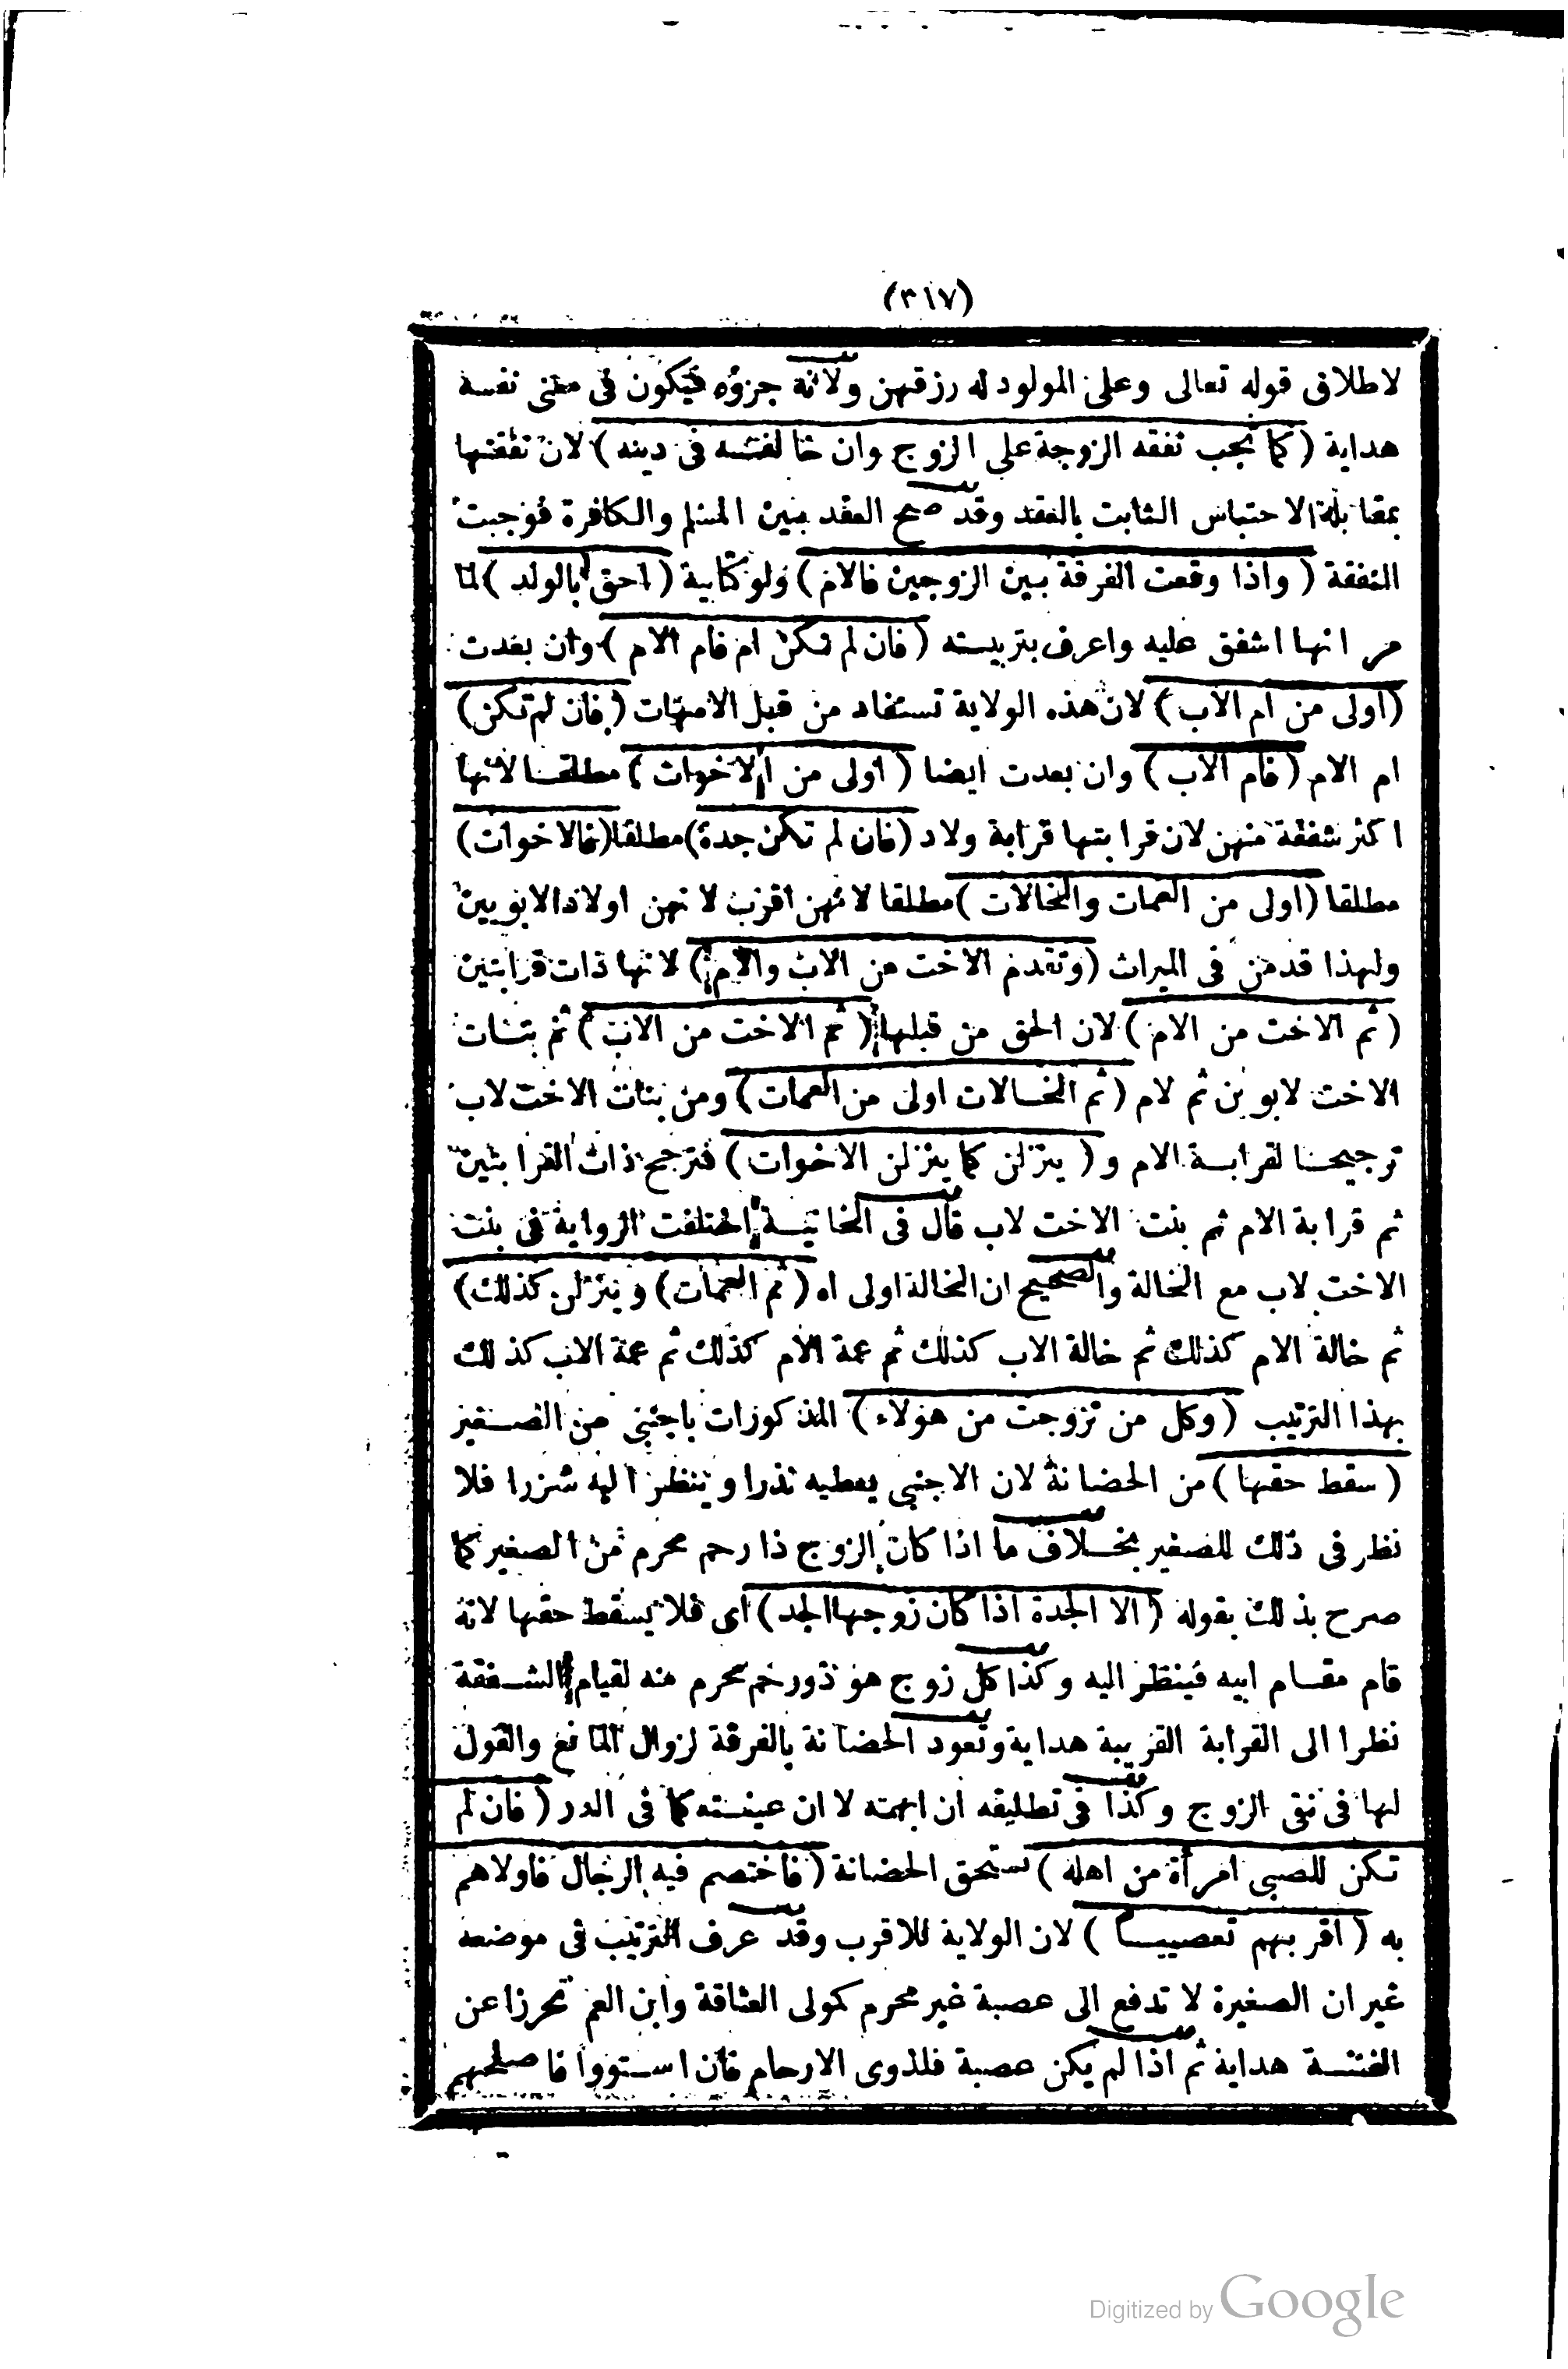 (٣١٧)
لاطلاق قوله تعالى وعلى المولود له رزقهن ولانه جزؤه فيكون فى معنى نفسه
هداية (كما تجب نفقه الزوجة على الزوج وان خالفته فى دينه) لان نفقتها
بمقابلة الاحتباس الثابت بالعقد وقد صح العقد بين المسلم والكافرة فوجبت
النفقة (واذا وقعت الفرقة بين الزوجين فالام) ولو كتابية (احق بالولد) لما
مر انها اشفق عليه واعرف بتربيته (فان لم تكن ام فام الام) وان بعدت
(اولى من ام الاب) لان هذه الولاية تستفاد من قبل الامهات (فان لم تكن)
ام الام (فام الاب) وان بعدت ايضا (اولى من الاخوات) مطلقا لانها
اكثر شفقة منهن لان قرابتها قرابة ولاد (فان لم تكن جدة) مطلقا (فالاخوات)
مطلقا (اولى من العمات والخالات) مطلقا لانهن اقرب لانهن اولاد الابوين
ولهذا قدمن فى الميراث (وتقدم الاخت من الاب والام) لانها ذات قرابتين
(ثم الاخت من الام) لان الحق من قبلها (ثم الاخت من الاب) ثم بنات
الاخت لابوين ثم لام (ثم الخالات اولى من العمات) ومن بنات الاخت لاب
ترجيحا لقرابة الام و (ينزلن كما ينزلن الاخوات) فترجح ذات القرابتين
ثم قرابة الام ثم بنت الاخت لاب قال فى الخانية اختلفت الرواية فى بنت
الاخت لاب مع الخالة والصحيح ان الخالة اولى اه (ثم العمات) وينزلن كذلك)
ثم خالة الام كذلك ثم خالة الاب كذلك ثم عمة الام كذلك ثم عمة الاب كذلك
بهذا الترتيب (وكل من تزوجت من هؤلاء) المذكورات باجنبى من الصغير
(سقط حقها) من الحضانة لان الاجنبى يعطيه نذرا وينظر اليه شزرا فلا
نظر فى ذلك للصغير بخلاف ما اذا كان الزوج ذا رحم محرم من الصغير كما
صرح بذلك بقوله (الا الجدة اذا كان زوجها الجد) اى فلا يسقط حقها لانه
قام مقام ابيه فينظر اليه وكذا كل زوج هو ذورحم محرم منه لقيام الشفقة
نظرا الى القرابة القريبة هداية وتعود الحضانة بالفرقة لزوال المانع والقول
لها فى نفى الزوج وكذا فى تطليقه ان ابهمته لا ان عينته كما فى الدر (فان لم
تكن للصبى امرأة من اهله) تستحق الحضانة (فاختصم فيه الرجال فاولاهم
به (اقربهم تعصيبا) لان الولاية للاقرب وقد عرف الترتيب فى موضعه
غير ان الصغيرة لا تدفع الى عصبة غير محرم كمولى العتاقة وابن العم تحرزا عن
الفتنة هداية ثم اذا لم يكن عصبة فلذوى الارحام فان استووا فاصلحهم
Digitized by Google